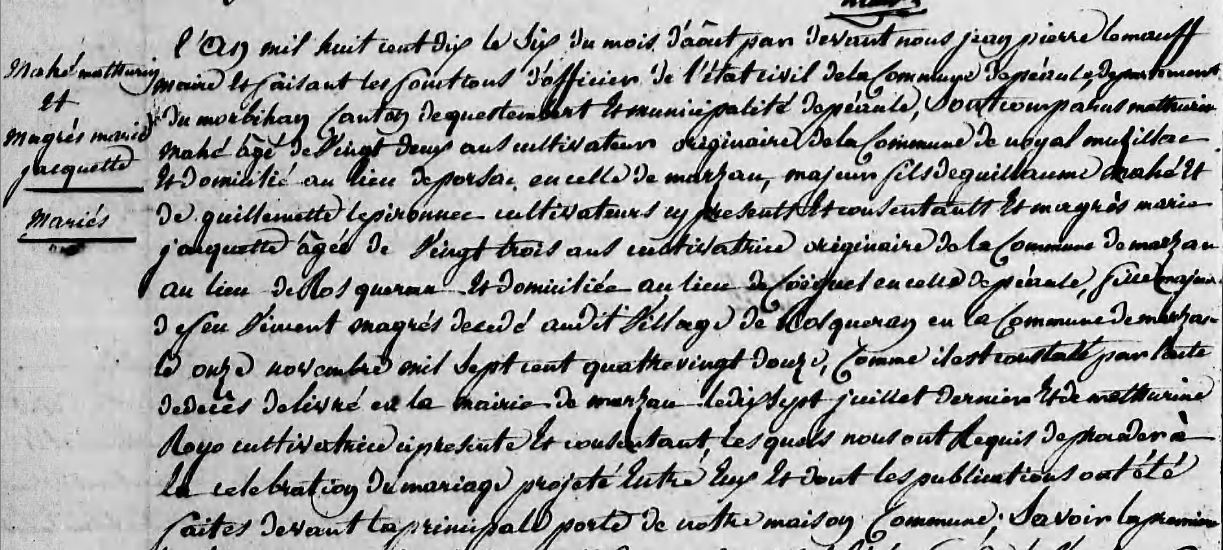 Mahé mathurin
Et
Magrés marie
jacquette
Mariés
l'An mil huit cent dix le Six du mois d'août par devant nous jean pierre lemauff
maire Et faisant les fonctions d'officier de l'état civil de la Commune depéaule, departement
du morbihan Canton dequestembert Et municipalité depéaule, Sont comparus mathurin
mahé âgé de Vingt deux ans cultivateur originaire de la Commune de noyal muzillac
Et domicilié au lieu deporsac en celle de marzan, majeur fils de guillaume mahé Et
de guillemette lepironnec cultivateurs cy present Et consentant Et magrés marie
jacquette âgée de Vingt trois ans cultivatrice originaire de la Commune de marzan
au lieu de Rosqueran Et domiciliée au lieu de en celle depéaule, fille majeure
de feu Vincent magrés decedé audit Village de Rosqueran en la Commune de marzan
le onze novembre mil Sept cent quatrevingt douze, Comme il est constaté par l'acte
dedecès delivré en la mairie de marzan le dix Sept juillet dernier Et de mathurine
Royo cultivatrice cipresente Et consentant, Lesquels nous ont Requis deproceder à
la celebration du mariage projeté Entre Eux Et dont les publications ont été
faites devant la principale porte de notre maison Commune; Savoir la premiere